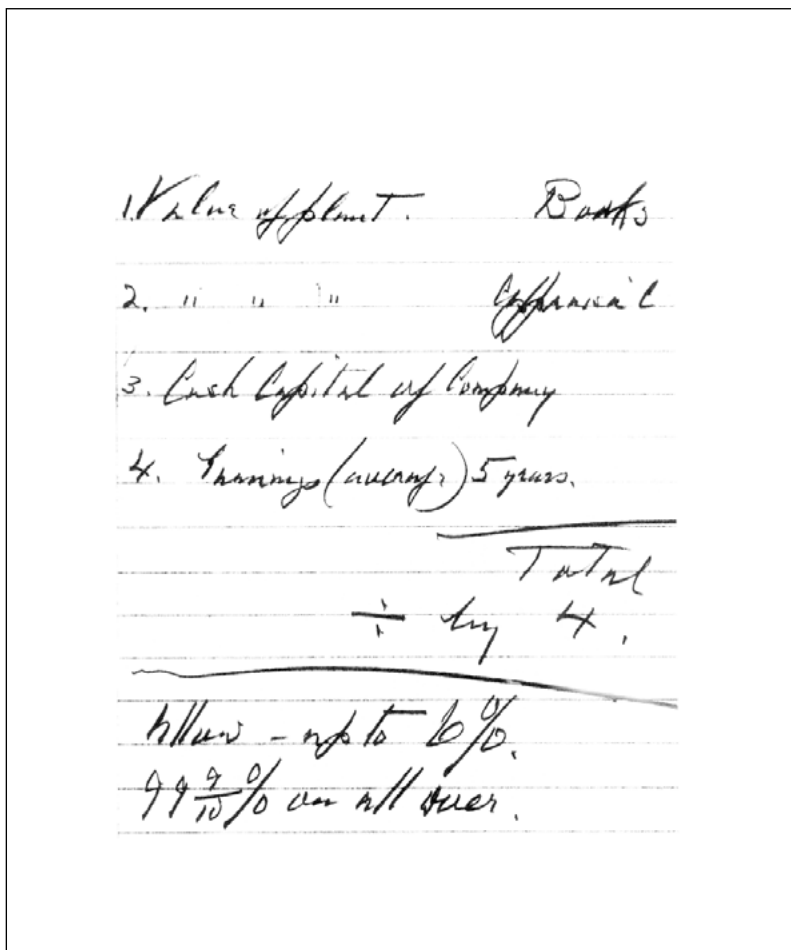 1. Value of plant. Books
2. " " " Appraisal
3. Cash Capital of Company
4. Earnings (average) 5 years.
Total
÷ by 4.
Allow - up to 6%.
99 9/10 % on all over.